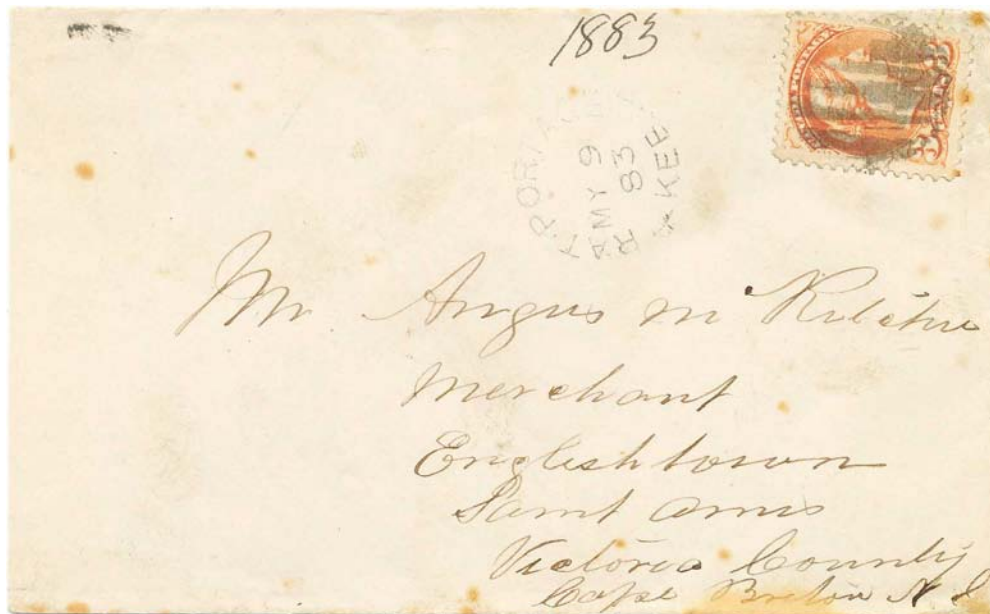 1883
MY 9
83
Mr Angus M Ritchie
Merchant
Englishtown
Saint Anns
Victoria County
Cape Breton N S